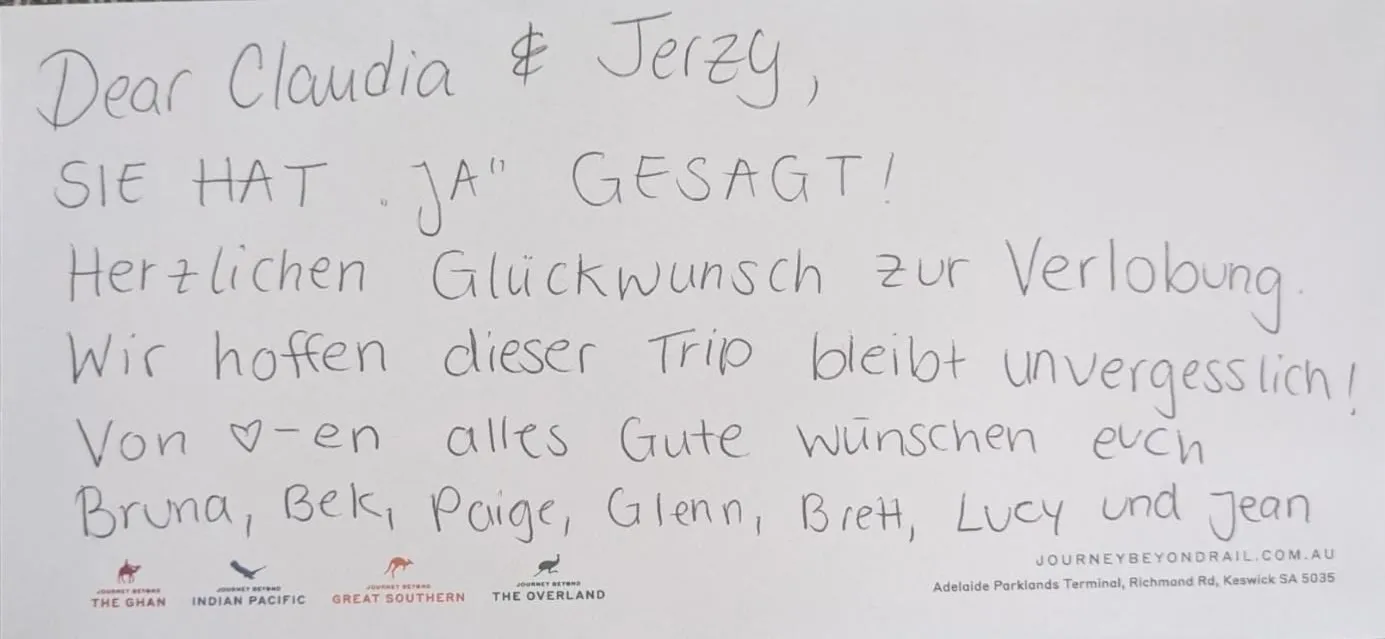 Dear Claudia & Jerzy,
SIE HAT „JA" GESAGT!
Herzlichen Glückwunsch zur Verlobung.
Wir hoffen dieser Trip bleibt unvergesslich!
Von ♡-en alles Gute wünschen euch
Bruna, Bek, Paige, Glenn, Brett, Lucy und Jean
JOURNEY BEYOND THE GHAN
JOURNEY BEYOND INDIAN PACIFIC
JOURNEY BEYOND GREAT SOUTHERN
JOURNEY BEYOND THE OVERLAND
JOURNEYBEYONDRAIL.COM.AU
Adelaide Parklands Terminal, Richmond Rd, Keswick SA 5035